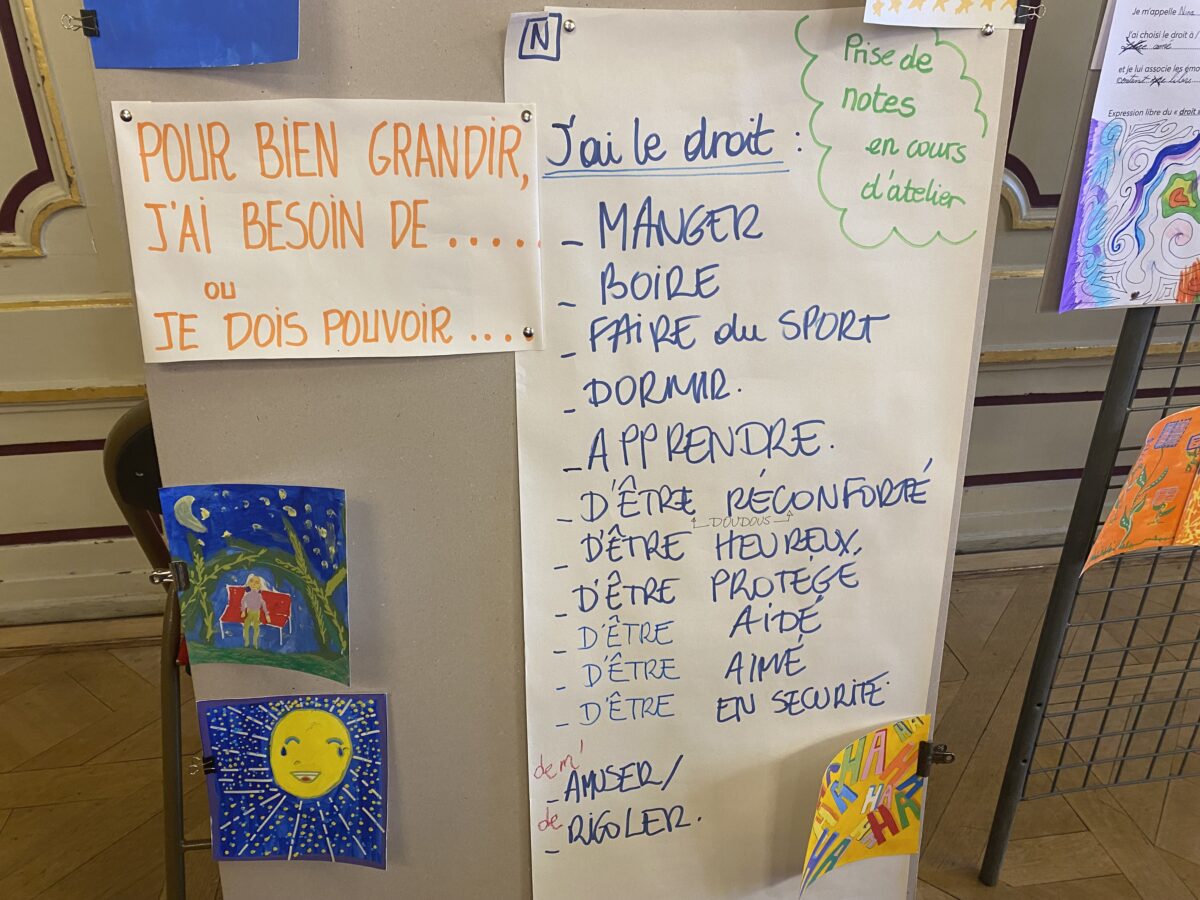 POUR BIEN GRANDIR,
J'AI BESOIN DE .....
OU
JE DOIS POUVOIR ....
N
Prise de
notes
en cours
d'atelier
J'ai le droit :
- MANGER
- BOIRE
- FAIRE du SPORT
- DORMIR.
- APPRENDRE.
- D'ÊTRE RÉCONFORTÉ
DOUDOUS
- D'ÊTRE HEUREUX,
- D'ÊTRE PROTÉGÉ
- D'ÊTRE AIDÉ
- D'ÊTRE AIMÉ
- D'ÊTRE EN SECURITÉ.
de m'
- AMUSER/
de
- RIGOLER.
HA HA
HA HA
HA HA
Je m'appelle Nina
J'ai choisi le droit à /
être aimé
et je lui associe les émo
content
Expression libre du « droit